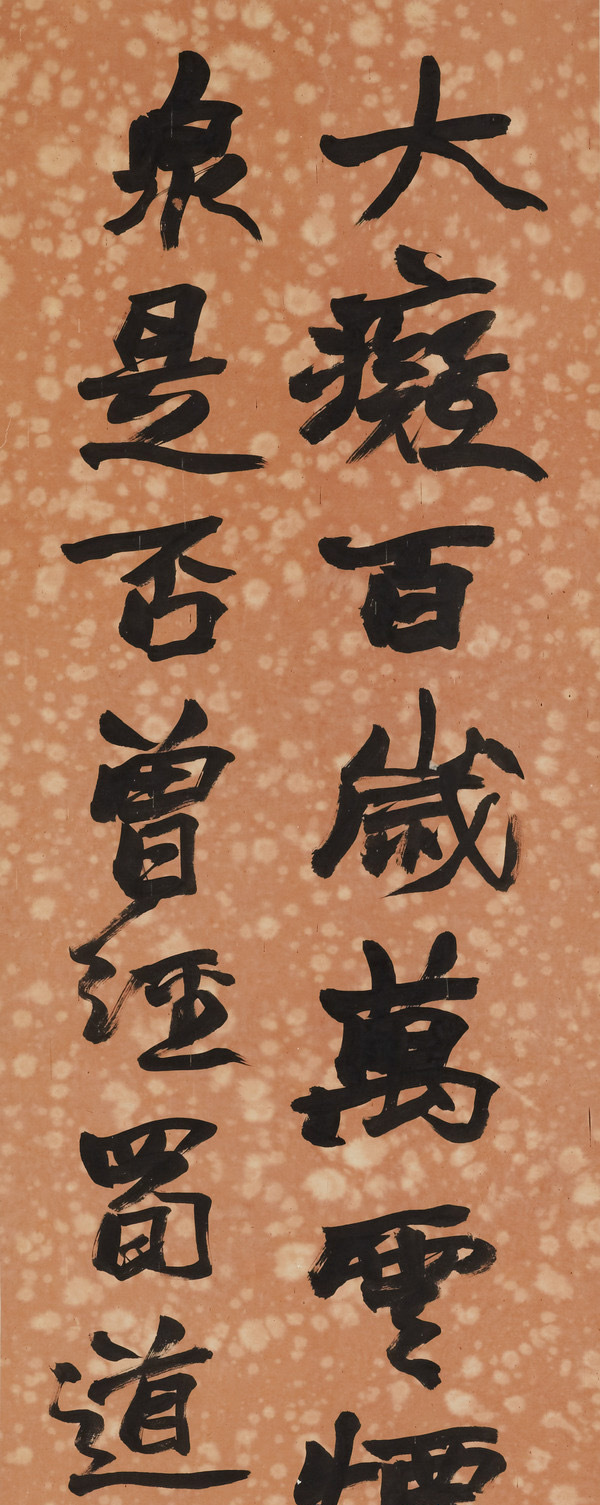 大癡百歲萬雲煙
泉是否曾經蜀道